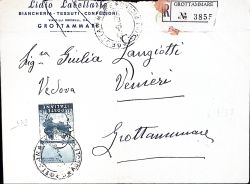 Lidio Labellarte
BIANCHERIA - TESSUTI - CONFEZIONI
GROTTAMMARE
R
GROTTAMMARE
№ 385F
Sig.ra Giulia Langiotti
Vedova Venieri
Grottammare